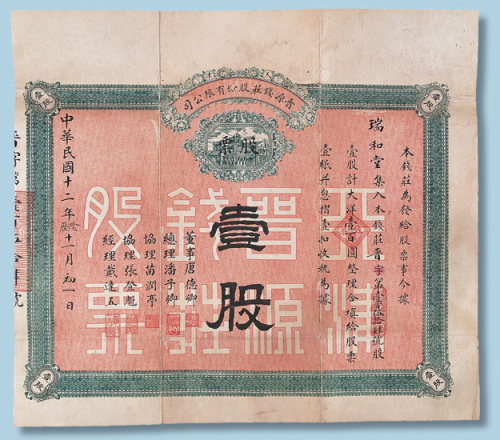 晋源錢莊股份有限公司
股票
本錢莊為發給股票事今據
瑞和堂集入本錢莊晋字第壹百
號股
壹股計大洋壹百圓整理合填給股票
壹紙并息摺壹扣收執為據
壹股
董事唐德卿
總理潘子卿
協理苗潤亭
協理張奎魁
經理戴達五
中華民國十二年陰歷十一月初一日
晋字第
號
北晋錢股
源莊票